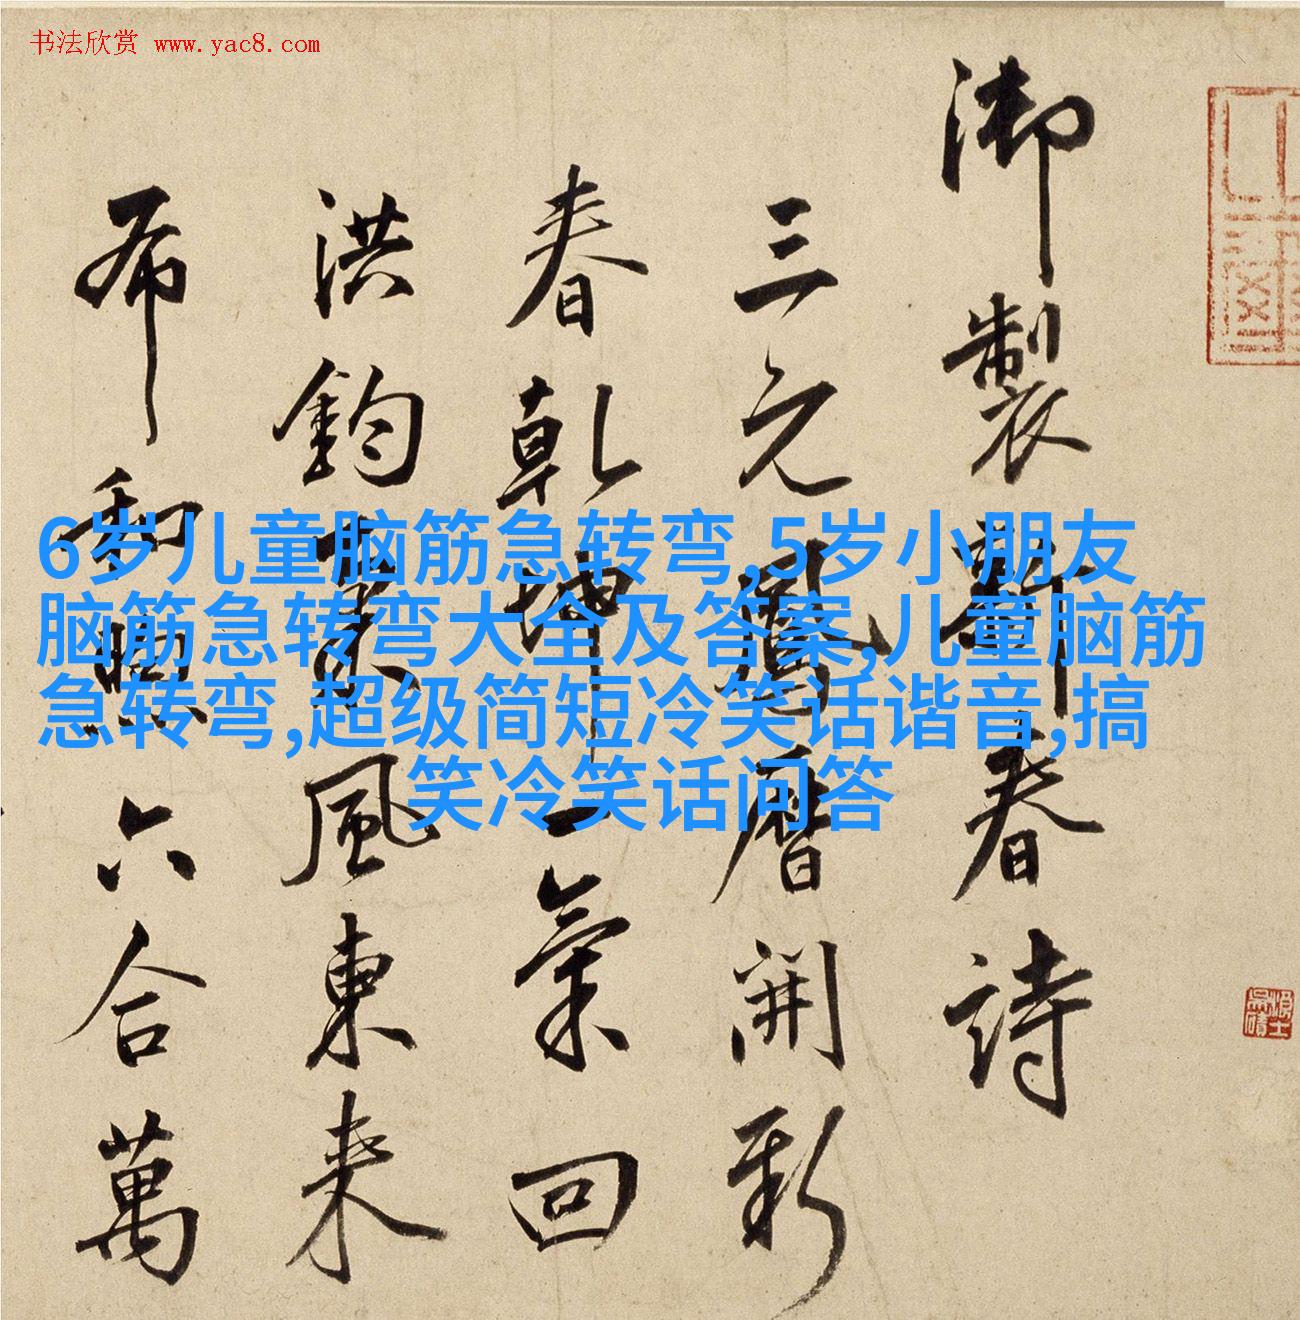 书法欣赏 www.yac8.com
御製新春詩
三元鳳曆開新
春乾坤一氣回
洪鈞風東來
布和煦六合萬
6岁儿童脑筋急转弯,5岁小朋友
脑筋急转弯大全及答案,儿童脑筋
急转弯,超级简短冷笑话谐音,搞
笑冷笑话问答